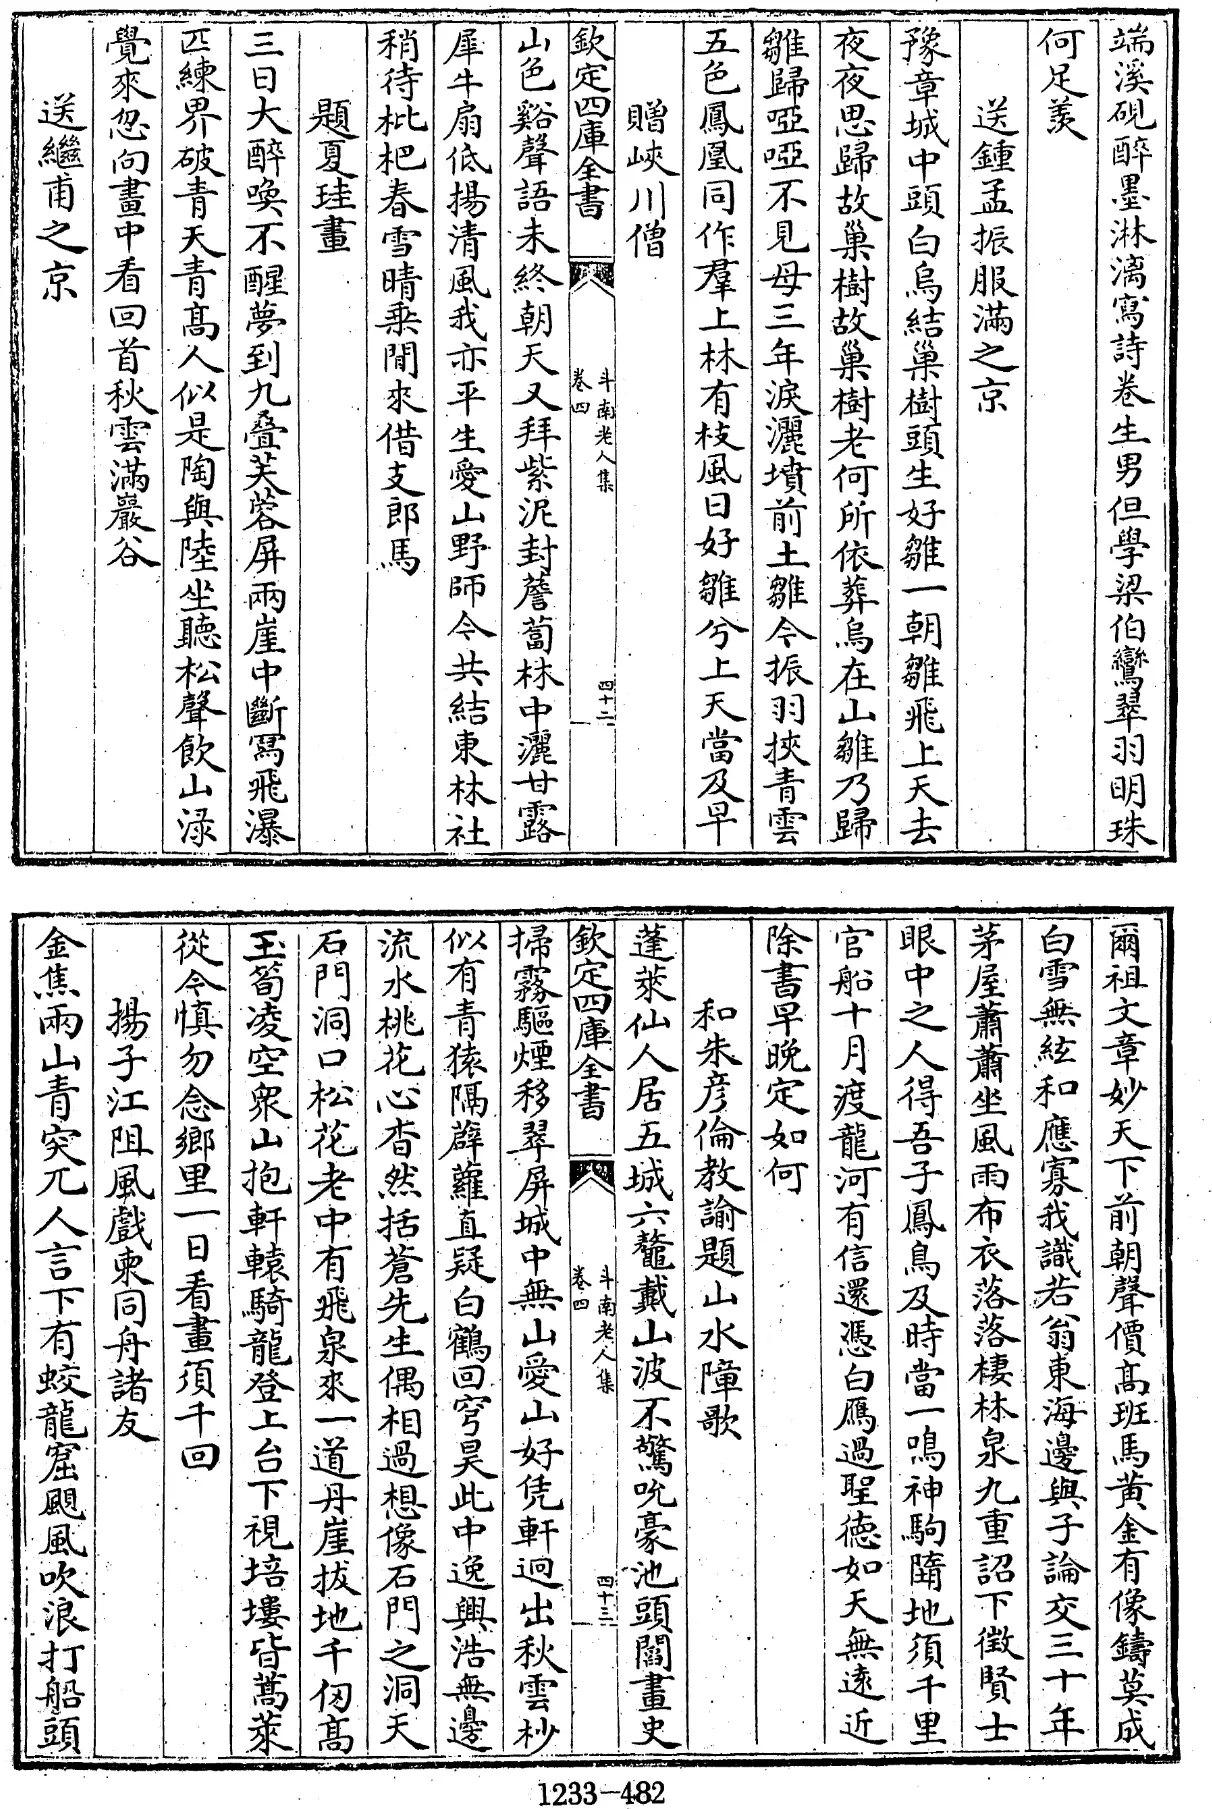 端溪硯醉墨淋漓寫詩卷生男但學梁伯鸞翠羽明珠
何足羨
送鍾孟振服滿之京
豫章城中頭白烏結巢樹頭生好雛一朝雛飛上天去
夜夜思歸故巢樹故巢樹老何所依葬烏在山雛乃歸
雛歸啞啞不見母三年淚灑墳前土雛今振羽挾青雲
五色鳳凰同作羣上林有枝風日好雛兮上天當及早
贈峽川僧
欽定四庫全書
斗南老人集
卷四
四十二
山色谿聲語未終朝天又拜紫泥封薝蔔林中灑甘露
犀牛扇低揚清風我亦平生愛山野師今共結東林社
稍待枇杷春雪晴乗閒來借支郎馬
題夏珪畫
三日大醉喚不醒夢到九疊芙蓉屏兩崖中斷寫飛瀑
匹練界破青天青髙人似是陶與陸坐聽松聲飲山渌
覺來忽向畫中看回首秋雲滿巖谷
送繼甫之京
爾祖文章妙天下前朝聲價髙班馬黄金有像鑄莫成
白雪無絃和應寡我識若翁東海邊與子論交三十年
茅屋蕭蕭坐風雨布衣落落棲林泉九重詔下徴賢士
眼中之人得吾子鳳鳥及時當一鳴神駒墮地須千里
官船十月渡龍河有信還憑白鴈過聖德如天無逺近
除書早晚定如何
和朱彦倫教諭題山水障歌
蓬萊仙人居五城六鼇戴山波不驚吮豪池頭閻畫史
欽定四庫全書
斗南老人集
卷四
四十三
掃霧驅煙移翠屏城中無山愛山好凭軒迥出秋雲杪
似有青猿隔薜蘿直疑白鶴回穹昊此中逸興浩無邊
流水桃花心杳然括蒼先生偶相過想像石門之洞天
石門洞口松花老中有飛泉來一道丹崖拔地千仞髙
玉筍凌空衆山抱軒轅騎龍登上台下視培塿皆蒿萊
從今慎勿念鄉里一日看畫須千回
揚子江阻風戲柬同舟諸友
金焦兩山青突兀人言下有蛟龍窟颶風吹浪打船頭
1233-482